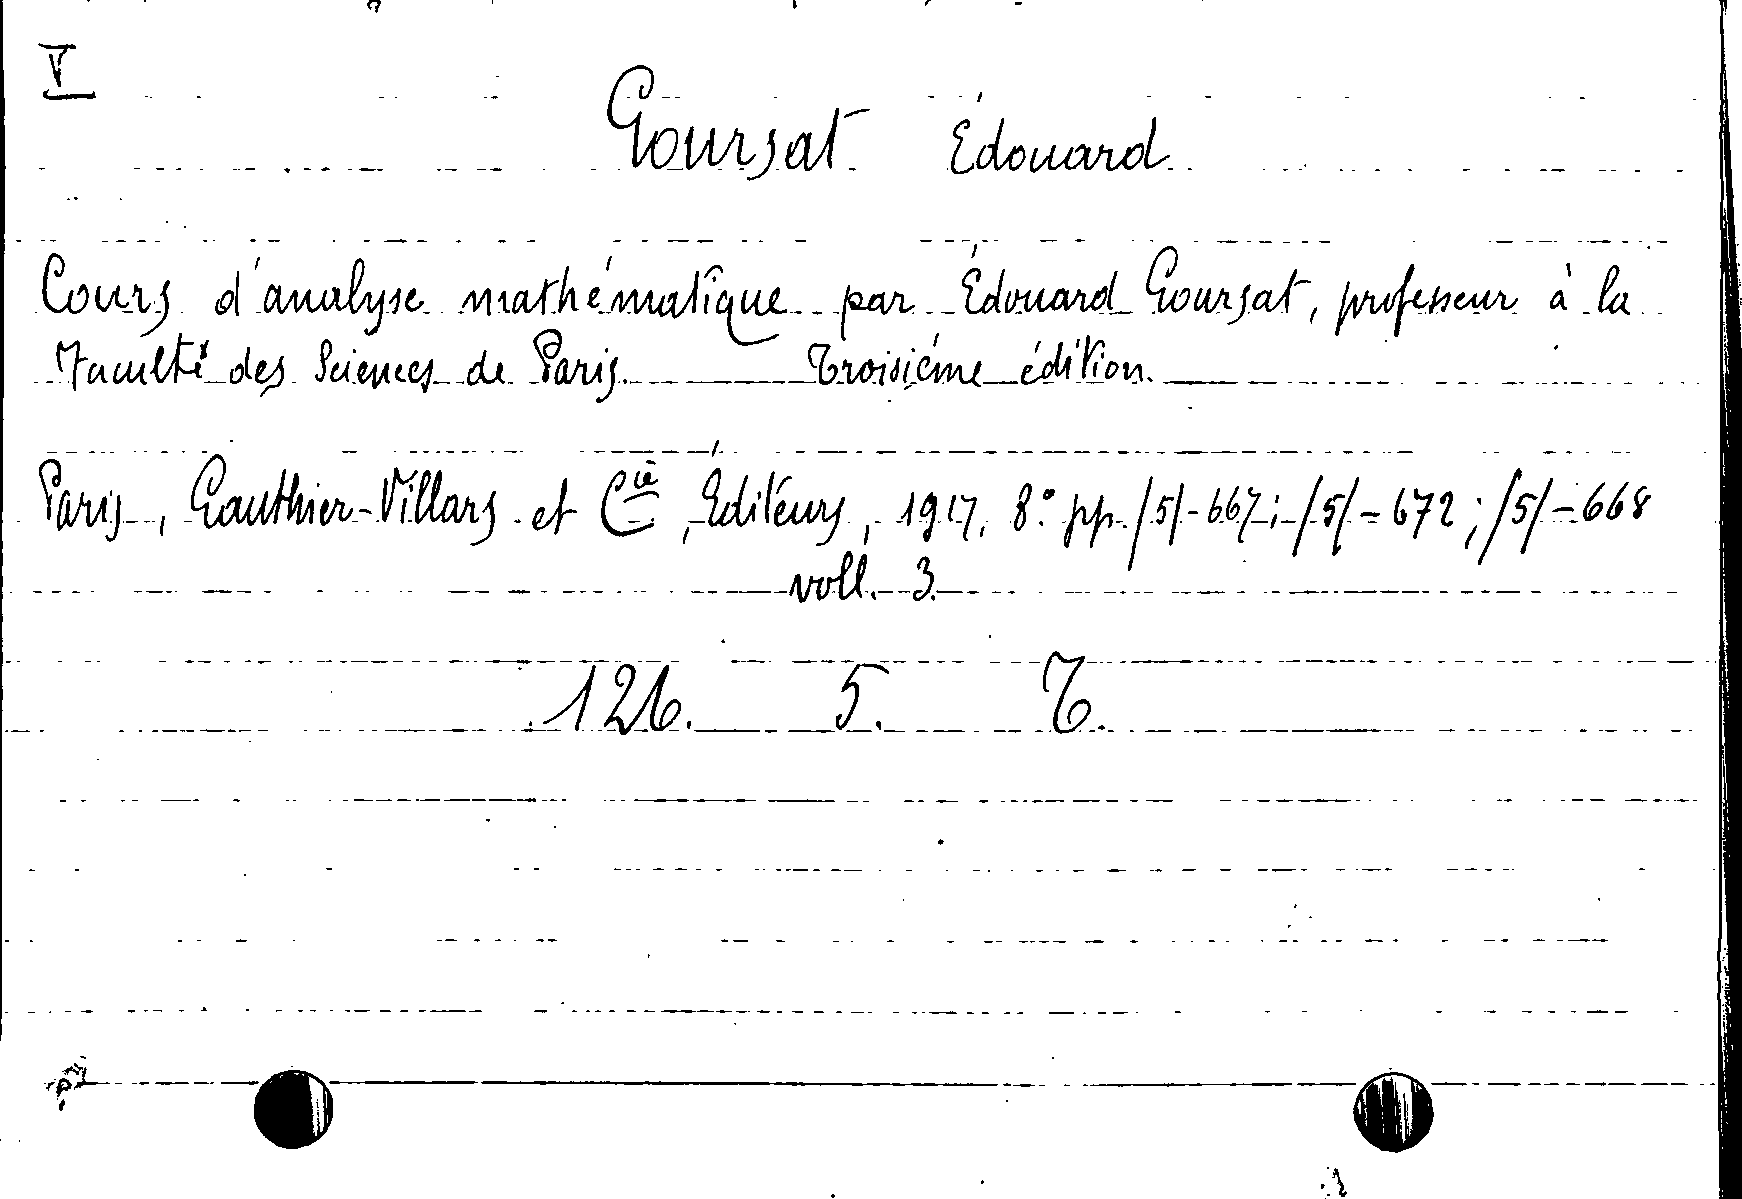 V
Goursat Édouard
Cours d'analyse mathématique par Édouard Goursat, professeur à la
Faculté des Sciences de Paris. Troisiéme édition.
Paris, Gauthier-Villars et Cie, Éditeurs, 1917, 8° pp. /5/-667; /5/-672; /5/-668
voll. 3.
126. 5. T.